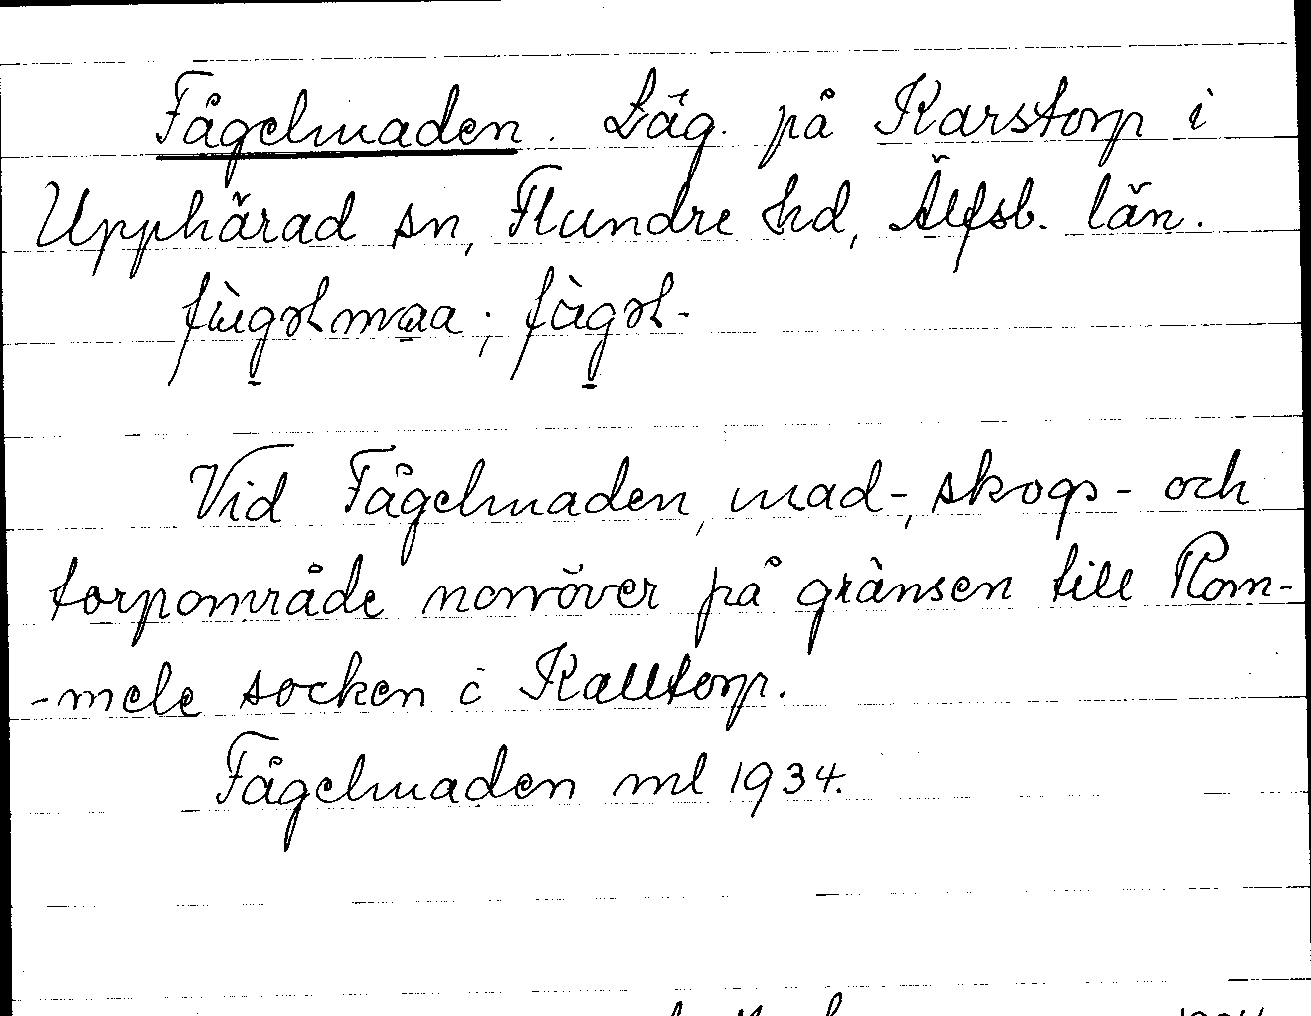 Fågelmaden. Läg. på Karstorp i
Upphärad sn, Flundre hd, Älfsb. län.
fùgəlmaa; fàgəl-
Vid Fågelmaden, mad-, skogs- och
torpområde norröver på gränsen till Rom-
-mele socken i Kalltorp.
Fågelmaden ml 1934.